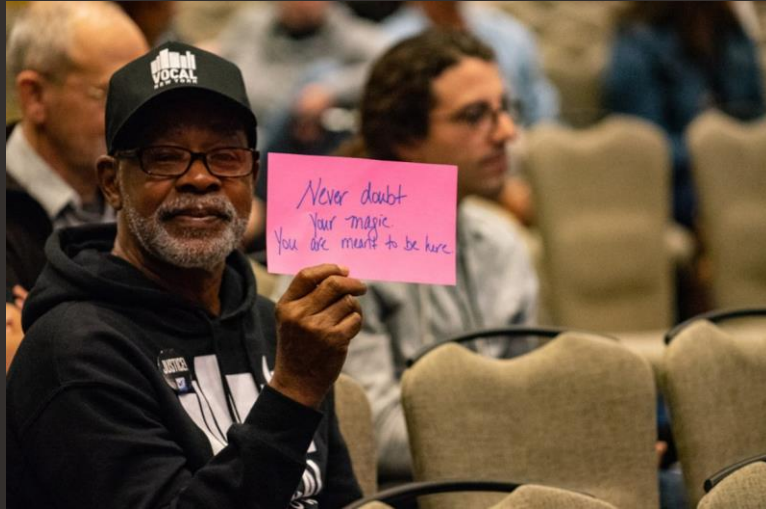 VOCAL
NEW YORK
Never doubt
your magic.
You are meant to be here
JUSTICE!